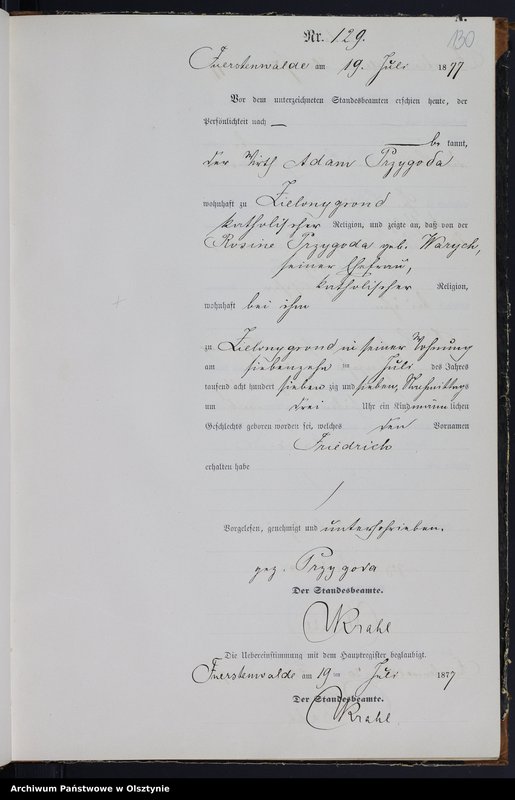 A.
Nr. 129.
130
Fuerstenwalde am 19. Juli 1877
Vor dem unterzeichneten Standesbeamten erschien heute, der
Persönlichkeit nach —
be kannt,
der Wirth Adam Przygoda
wohnhaft zu Zielonygrond
katholischer Religion, und zeigte an, daß von der
Rosine Przygoda geb. Warych,
seiner Ehefrau,
katholischer Religion,
wohnhaft bei ihm
zu Zielonygrond in seiner Wohnung
am siebenzehn ten Juli des Jahres
tausend acht hundert sieben zig und sieben, Nachmittags
um drei Uhr ein Kind männlichen
Geschlechts geboren worden sei, welches den Vornamen
Friedrich
erhalten habe
Vorgelesen, genehmigt und unterschrieben.
gez. Przygoda
Der Standesbeamte.
Krahl
Die Uebereinstimmung mit dem Hauptregister beglaubigt.
Fuerstenwalde am 19 ten Juli 1877
Der Standesbeamte.
Krahl.
Archiwum Państwowe w Olsztynie